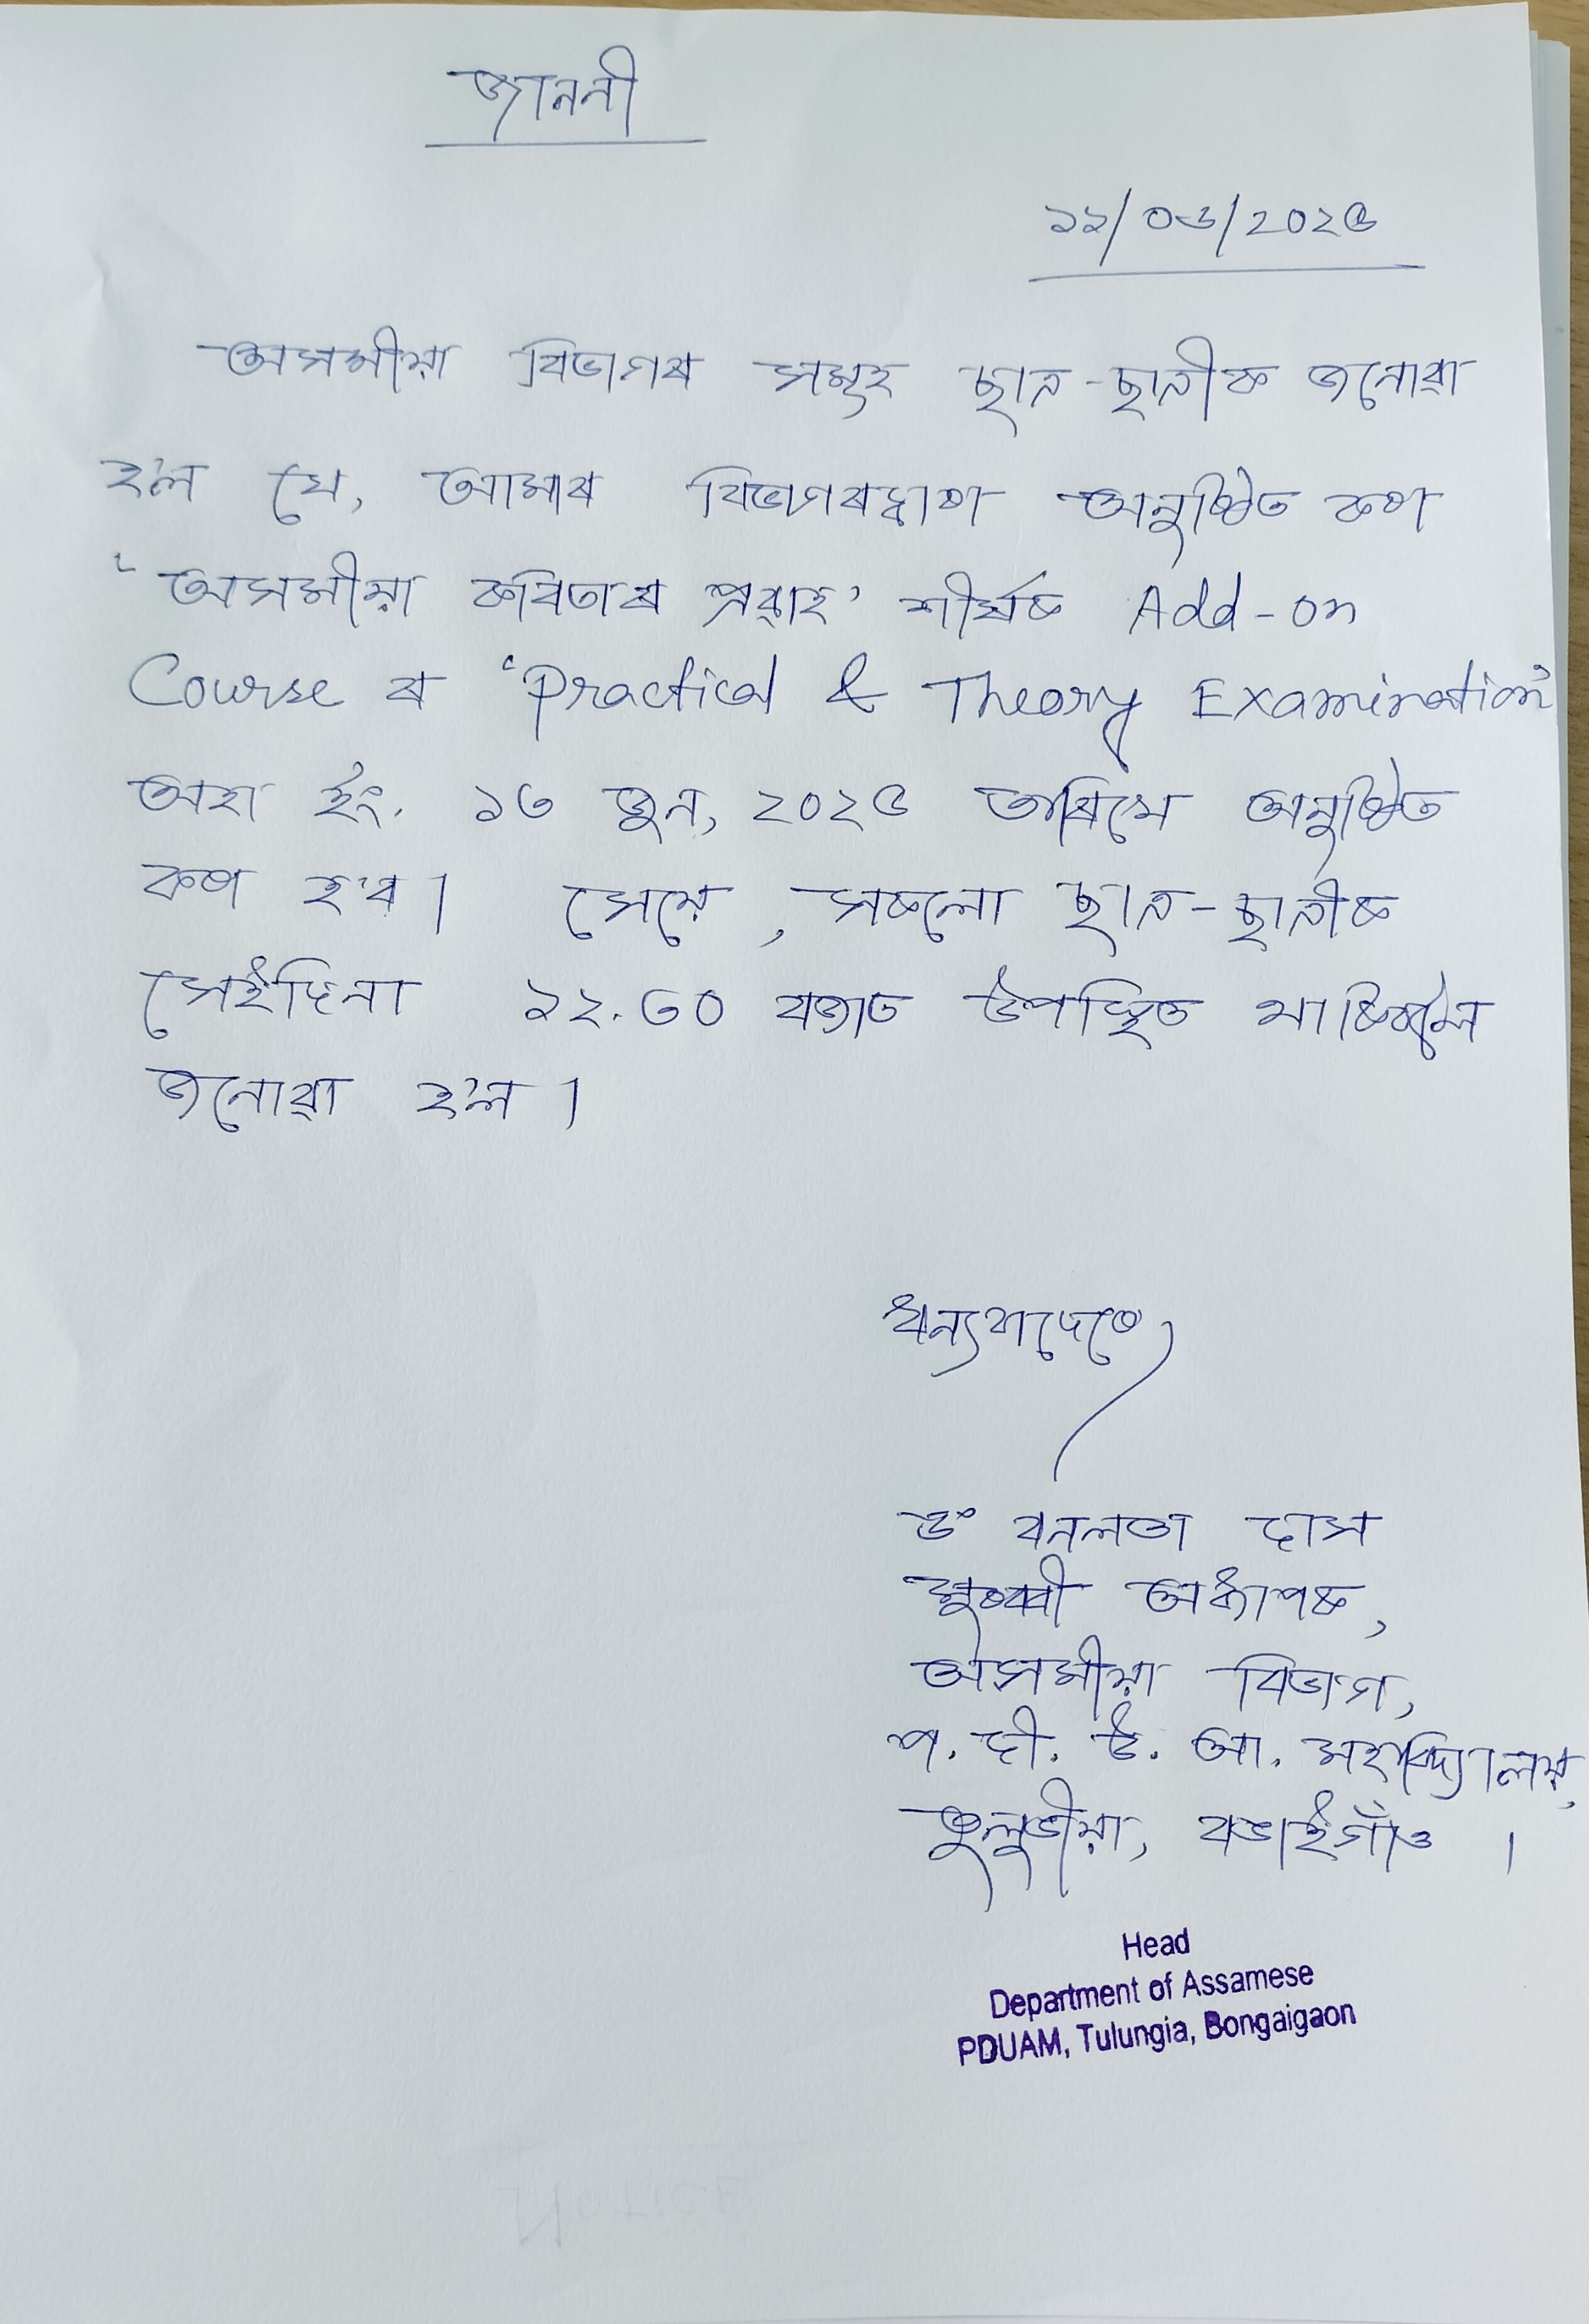 জাননী
১২/০৬/২০২৫
অসমীয়া বিভাগৰ সমূহ ছাত্ৰ-ছাত্ৰীক জনোৱা
হ'ল যে, আমাৰ বিভাগৰদ্বাৰা অনুষ্ঠিত কৰা
‘অসমীয়া কবিতাৰ প্ৰৱাহ’ শীৰ্ষক Add-on
Course ৰ ‘Practical & Theory Examination’
অহা ইং. ১৩ জুন, ২০২৫ তাৰিখে অনুষ্ঠিত
কৰা হ'ব। সেয়ে, সকলো ছাত্ৰ-ছাত্ৰীক
সেইদিনা ১২.৩০ বজাত উপস্থিত থাকিবলৈ
জনোৱা হ'ল।
ধন্যবাদেৰে,
ড° বনলতা দাস
মুৰব্বী অধ্যাপক,
অসমীয়া বিভাগ,
প. দী. উ. আ. মহাবিদ্যালয়,
তুলুঙীয়া, বঙাইগাঁও ।
Head
Department of Assamese
PDUAM, Tulungia, Bongaigaon